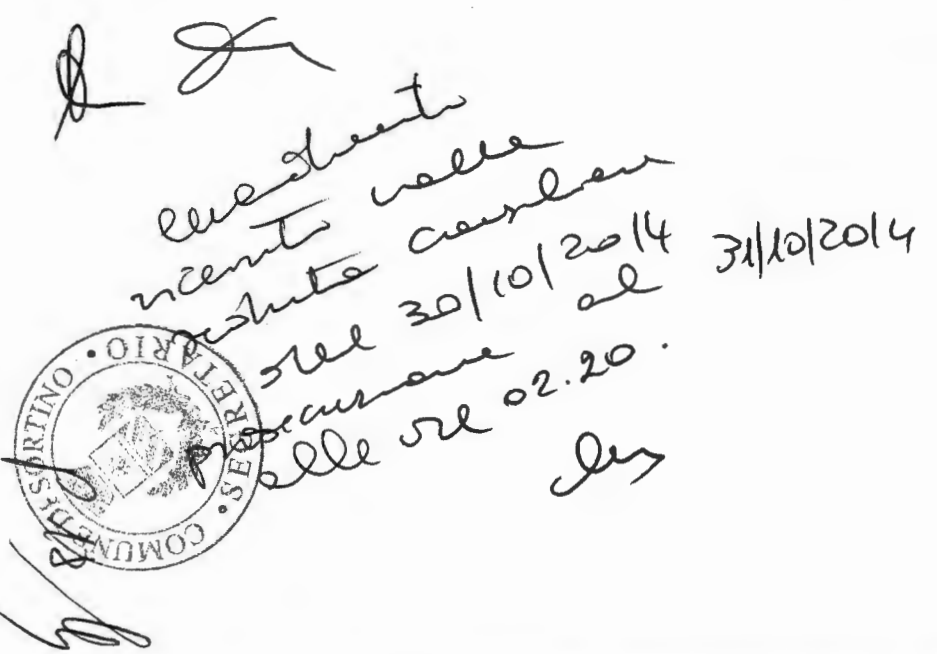 emendamento
ricevuto nella
seduta consiliare
del 30/10/2014
prosecuzione al 31/10/2014
alle ore 02.20.
COMUNE DI SORTINO • SEGRETARIO •